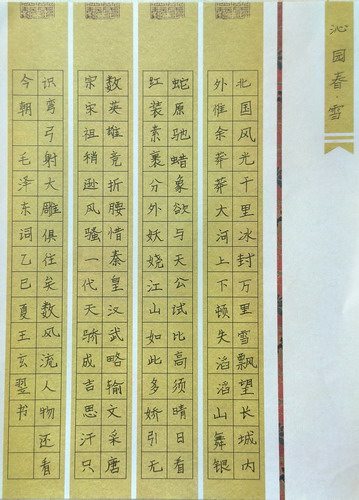 沁园春·雪
北国风光千里冰封万里雪飘望长城内
外惟余莽莽大河上下顿失滔滔山舞银
蛇原驰蜡象欲与天公试比高须晴日看
红装素裹分外妖娆江山如此多娇引无
数英雄竞折腰惜秦皇汉武略输文采唐
宗宋祖稍逊风骚一代天骄成吉思汗只
识弯弓射大雕俱往矣数风流人物还看
今朝 毛泽东词乙巳夏王玄翌书